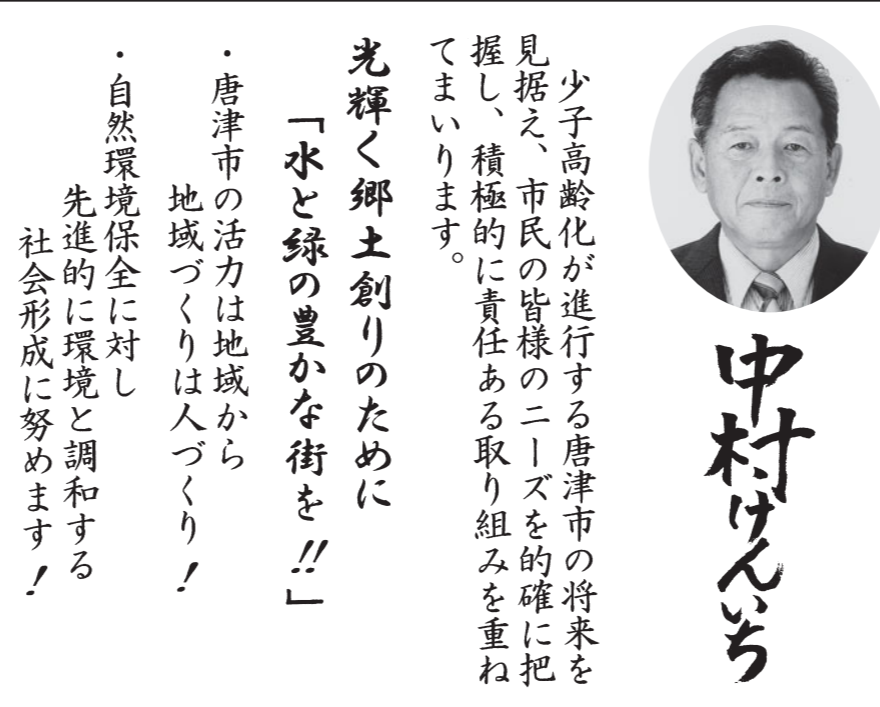 中村けんいち
少子高齢化が進行する唐津市の将来を
見据え、市民の皆様のニーズを的確に把
握し、積極的に責任ある取り組みを重ね
てまいります。
光輝く郷土創りのために
「水と緑の豊かな街を!!」
・唐津市の活力は地域から
地域づくりは人づくり!
・自然環境保全に対し
先進的に環境と調和する
社会形成に努めます!